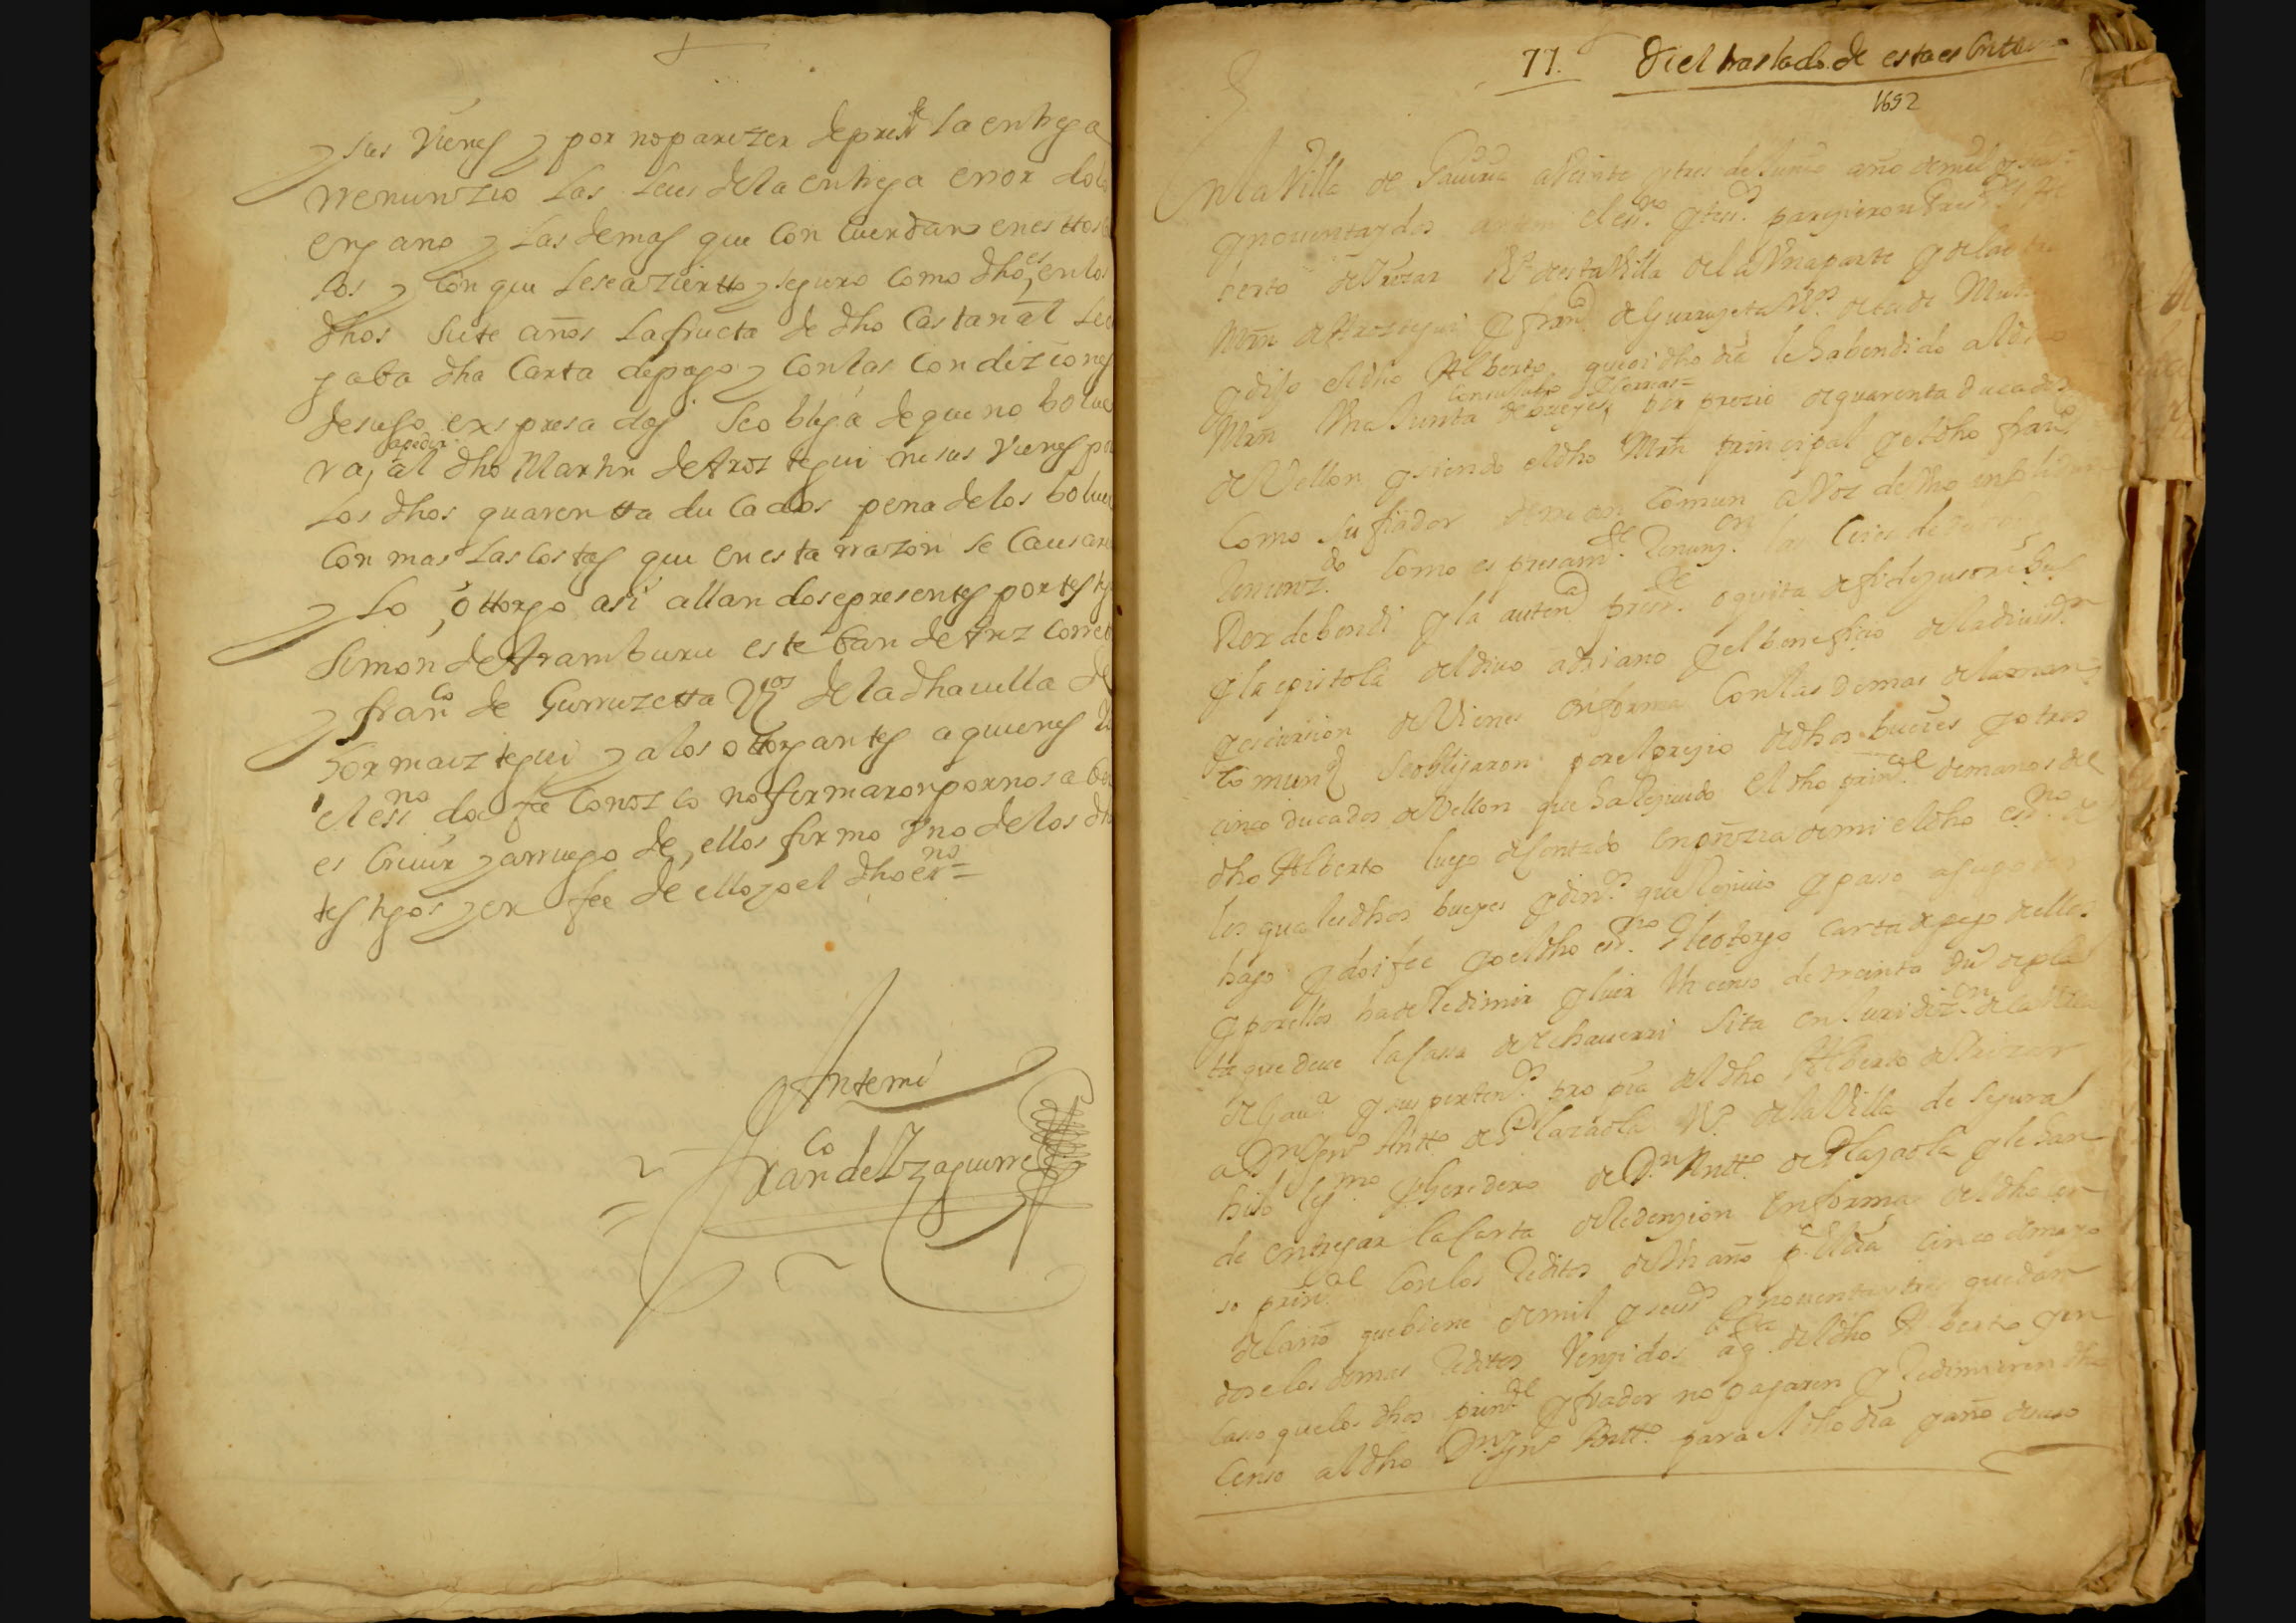 y sus vienes y por no parezer de press.te la entrega
rrenunzio las leies de la entrega error dolo
engano y las demas que concuerdan en esttos ca
sos y con que le sea zierto y seguro como dho es en los
dhos siete años la fructa de dho castañal le
gaba dha carta de pago y con las condiziones
de suso expresadas se obliga de que no bolue
ra a pedir al dho Martin de Aroztegui ni sus vienes
los dhos quarentta ducados pena de los boluer
con mas las costas que en esta rrazon se causaren
y lo ottorgo asi allandose presentes por testigos
Simon de Aramburu esteban de Ariz correo
y fran.co de Gurruzetta Vz.os de la dha villa de
Hormaiztegui y a los ottorgantes a quienes
el ess.no doi fee conozco no firmaron por no saber
escriuir y a rruego de ellos firmo vno de los dhos
testigos y en fee de ello yo el dho ess.no =
Antemi
Fran.co de Yzaguirre
77. Di el traslado de esta escritura
1692
En la Villa de Gauiria a veinte y tres de Junio año de mil y seis.
y nouenta y dos ante mi el ess.no y tes.os parezieron Pres.tes Al
berto de V.o desta Villa de la vna parte y de la otra
Mrn de Aroztegui y fran.co de Gurruzeta V.os de la de
y dijo el dho Alberto que oi dho dia le ha bendido al dho
Mrn vna Junta de bueyes con su por prezio de quarenta ducados
de Vellon y siendo el dho Mrn principal y el dho fran.co
Como su fiador de mancomun a voz de vno insolidum
Renunz.do como espresam.te Renunz.on las leies de duobus
Rex debendi y la auten.ca pres.te oquita de fidejusoribus
y la epistola del diuo adriano y el beneficio de la diuision
y escursion de Vienes en forma Con las demas de la man
comun.d Se obligaron por el prezio de dhos bueies y otros
cinco ducados de Vellon que ha Reziuido el dho prin.al de manos del
dho Alberto luego de contado en presenzia de mi el dho ess.no de
los quales dhos bueyes y din.o que Reziuio y paso a su poder
hago y doi fee yo el dho ess.no y le otorgo carta de pago de ellos
y por ellos ha de Redimir y luir vn censo de treinta du.s de pla
ta que deue la Casa de Echauerri Sita en Juridiz.on de la Villa
de Gau.a y sus perten.s propia del dho Alberto
a Dn Jn.o Antt.o de Plazaola V.o de la Villa de Segura
hijo leg.mo y heredero de Dn Antt.o de Plazaola y le han
de entregar la Carta de Redenzion en forma del dho cen
so prin.al Con los Reditos de vn año p.a el dia cinco de mayo
del año que biene de mil y seis.os y nouenta y tres quedan
dose los demas Reditos Venzidos a q.ta del dho Alberto y en
caso que los dhos prin.al y fiador no pagaren y Redimieren dho
Censo al dho Dn Jn.o Antt.o para el dho dia y año de suso